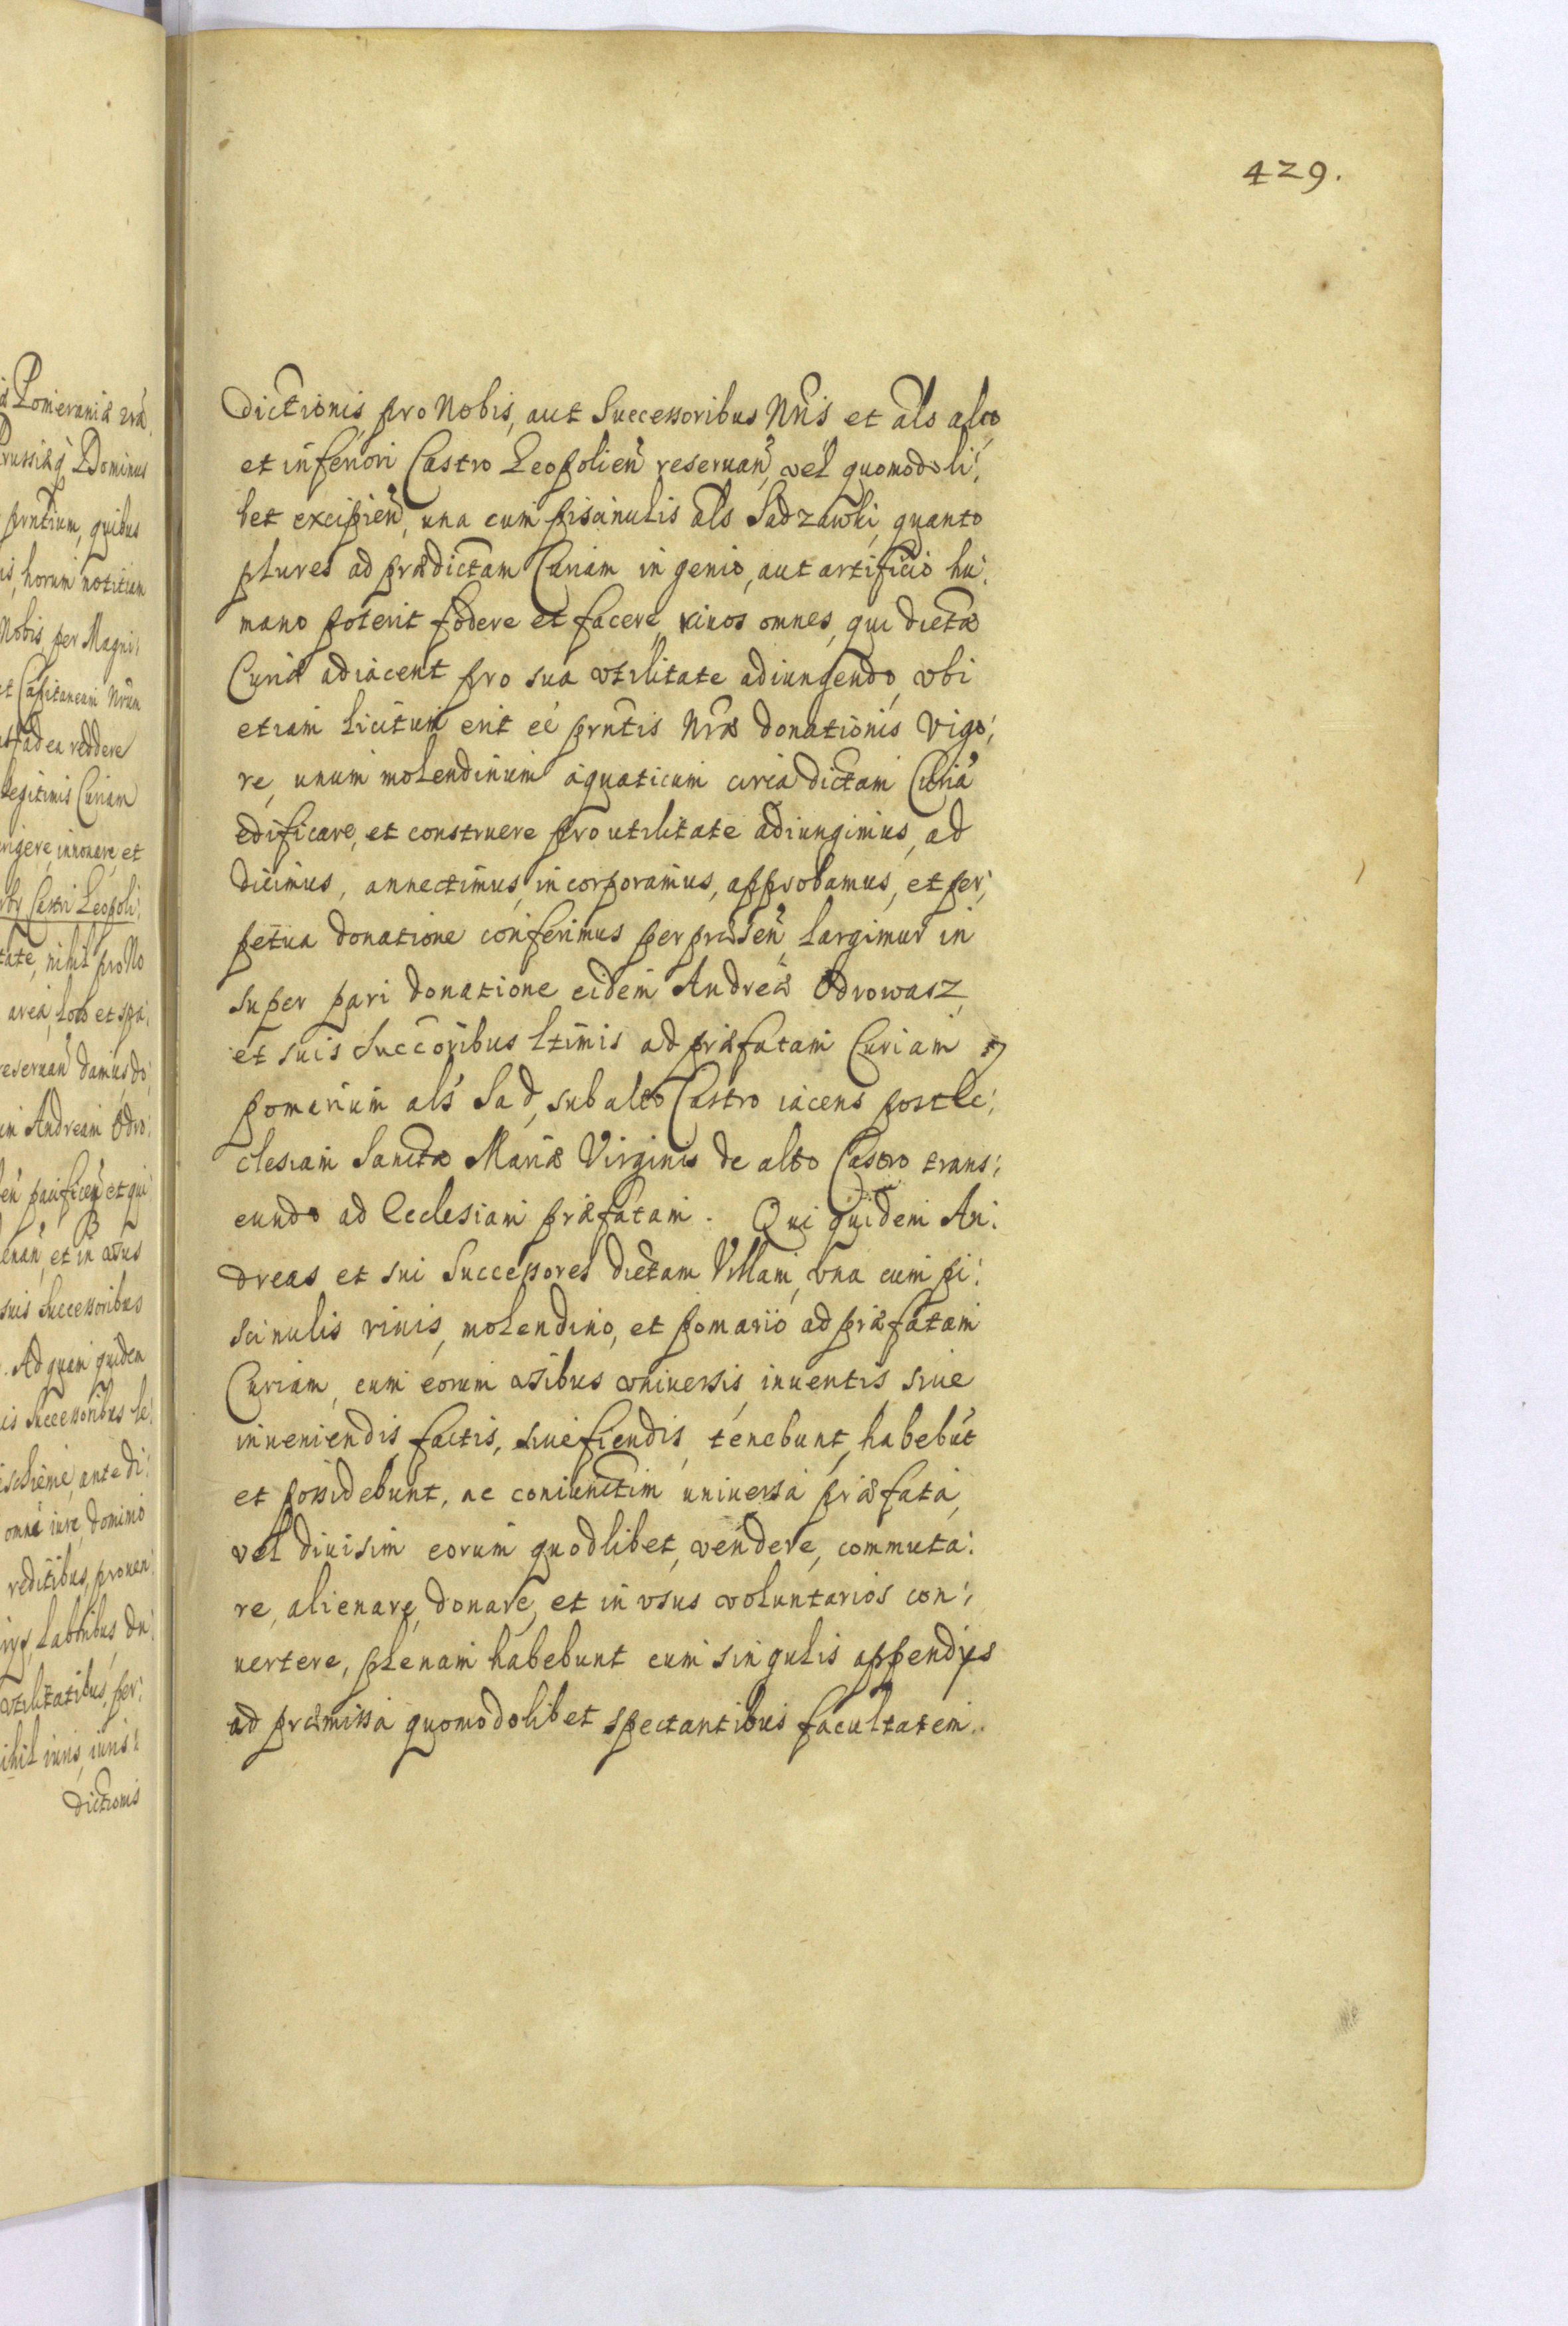 429.
dictionis, pro Nobis, aut Successoribus Nris et als alto
et inferiori Castro Leopolien reseruan, vel quomodoli:
bet excipien, una cum piscinulis als Sadzawki, quanto
plures ad prædictam Curiam ingenio, aut artificio hu:
mano poterit fodere et facere, riuos omnes, qui dictæ
Curiæ adiacent pro sua vtilitate adiungendo, vbi
etiam licitum erit eé prntis Nræ donationis vigo:
re, unum molendinum aquaticum circa dictam Curiá
edificare, et construere pro utilitate adiungimus, ad
dicimus, annectimus, incorporamus, approbamus, et per:
petua donatione conferimus per præsen, largimur in
super pari donatione eidem Andreæ Odrowasz,
et suis Succoribus ltimis ad præfatam Curiam
pomarium als Sad, sub alto Castro iacens post Ec:
clesiam Sanctæ Mariæ Virginis de alto Castro trans:
eundo ad Ecclesiam præfatam. Qui quidem An:
dreas et sui Successores dictam Villam, vna cum pi:
scinulis riuis, molendino, et pomario ad præfatam
Curiam, cum eorum vsibus vniuersis, inuentis siue
inueniendis, factis, siue fiendis, tenebunt, habebút
et possidebunt, ac coniunctim uniuersa præfata,
vel diuisim eorum quodlibet, vendere, commuta:
re, alienare, donare, et in vsus voluntarios con:
uertere, plenam habebunt cum singulis appendys
ad præmissa quomodolibet spectantibus facultatem.
æ Pomeraniæ
Prussiæq Dominus
prntium, quibus
horum notitiam
Nobis, per Magni:
et Capitaneum Nrum
ad ea reddere
legitimis Curiam
erigere, innouare, et
Castri Leopoli:
nihil pro No
area, loco et spa:
reseruan damus, do:
Andream Odro:
et qui
et in vsus
suis Successoribus
. Ad quam quidem
Successoribus le:
ante di:
omne iure, dominio
reditibus, prouen:
laboribus, du
vtilitatibus, per:
nihil iuris, iuris:
dictionis